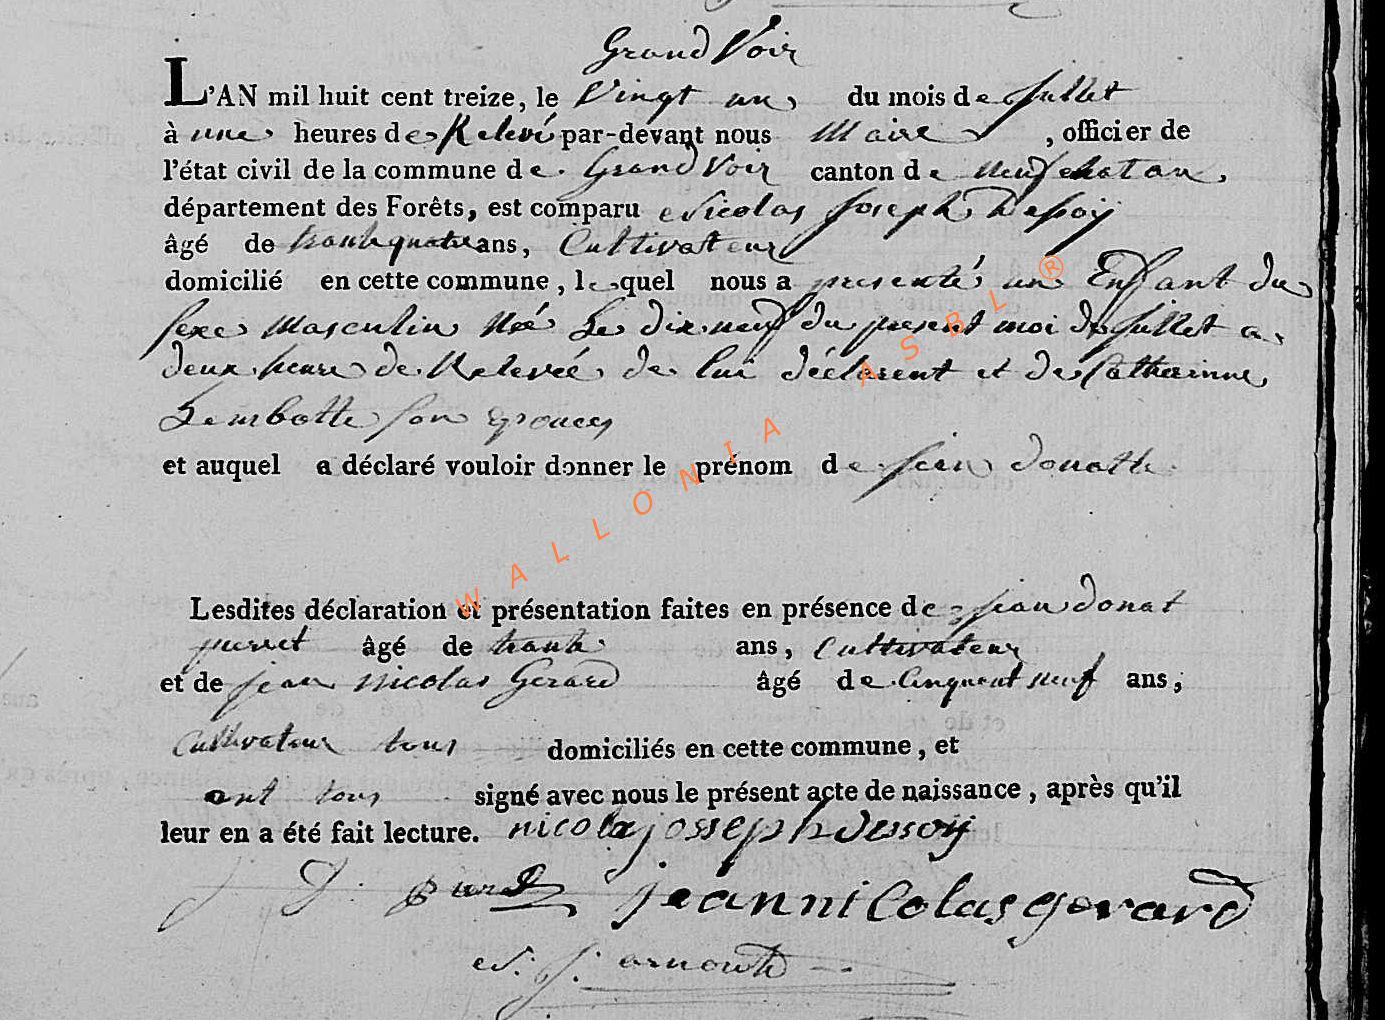 Grand Voir
L'AN mil huit cent treize, le Vingt un du mois de Juillet
à une heures de Relevé par-devant nous Maire , officier de
l'état civil de la commune de Grand Voir canton de Neufchatau
département des Forêts, est comparu Nicolas Joseph Dessoij
âgé de trante quatre ans, Cultivateur
domicilié en cette commune, lequel nous a presenté un Enfant du
sexe Masculin Né Le dix neuf du present moi de Juillet a
deux heure de Relevée de lui déclarent et de Catherinne
Lambotte son epouces
et auquel a déclaré vouloir donner le prénom de jean donatte
Lesdites déclaration et présentation faites en présence de jean donat
pierret âgé de trante ans, Cultivateur
et de jean nicolas Gerard âgé de Cinquent neuf ans,
Cultivateur tous domiciliés en cette commune, et
ont tous signé avec nous le présent acte de naissance, après qu'il
leur en a été fait lecture. nicolas josseph dessoij
J D jean nicolas gerard
N. J. arnould
WALLONIA ASBL ®